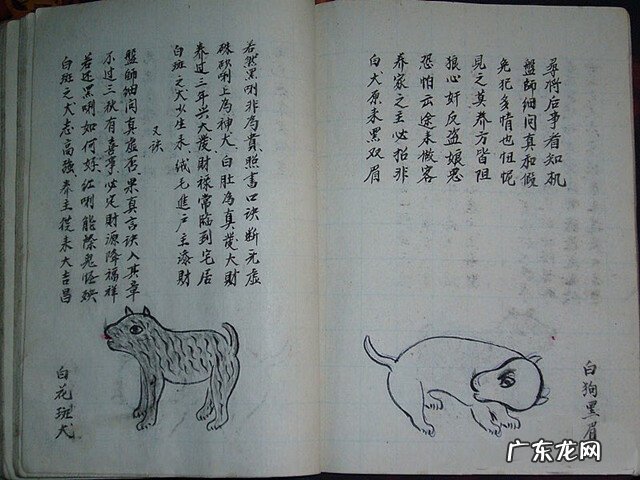 白斑之犬志高强 养主從来大吉昌
若还黑咧如何好 红咧能除鬼怪殃
不过三秋有喜事 必定財源降福祥
盤師细问真虚否 果真言诀入其章
又诀
白斑之犬少生来 绒毛進户主添財
养过三年兴大發 財禄常臨到宅居
硃砂咧上為神犬 白肚為真發大財
若然黑咧非為貴 照書口诀断无虚
白花斑犬
白犬原来黑双眉
养家之主必招非
恐怕云途来做客
狼心奸反盗娘恶
見之莫养方皆阻
免犯多情也怛怩
盤師细问真和假
尋将后事看知机
白狗黑眉
广东龙网